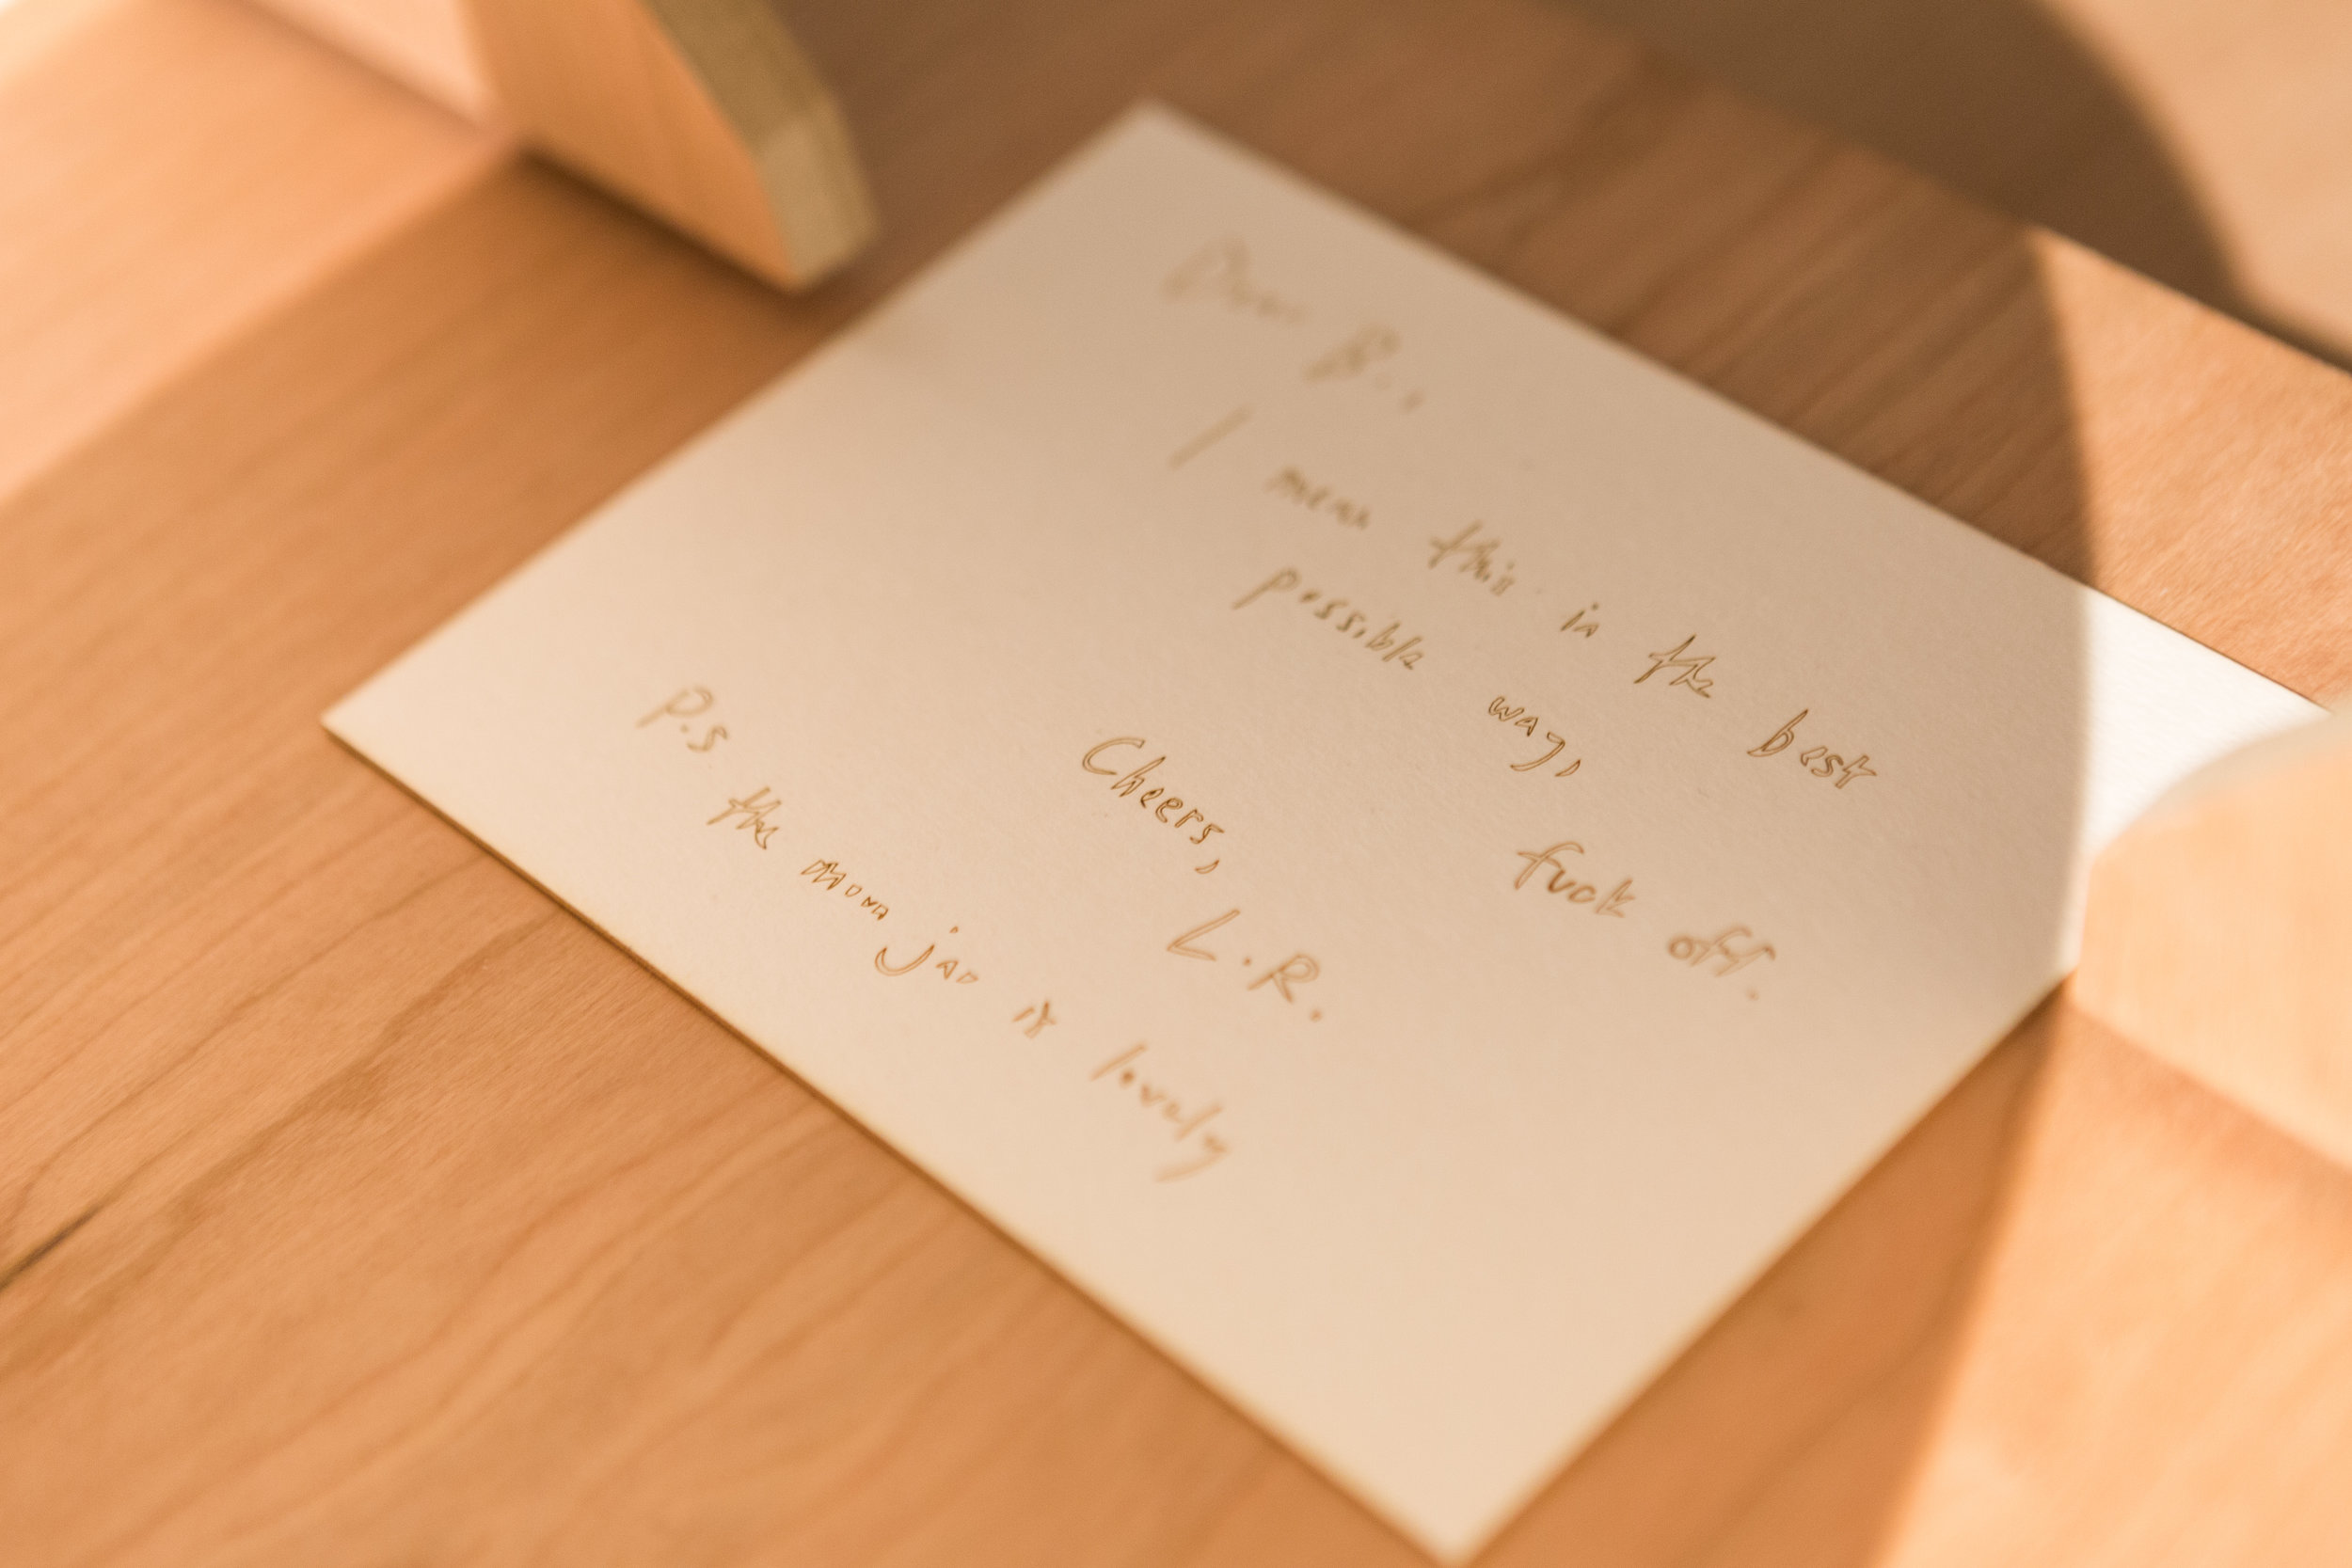 Dear B.,
I mean this in the best
possible way,
fuck off.
Cheers,
L.R.
P.S the moon jar is lovely